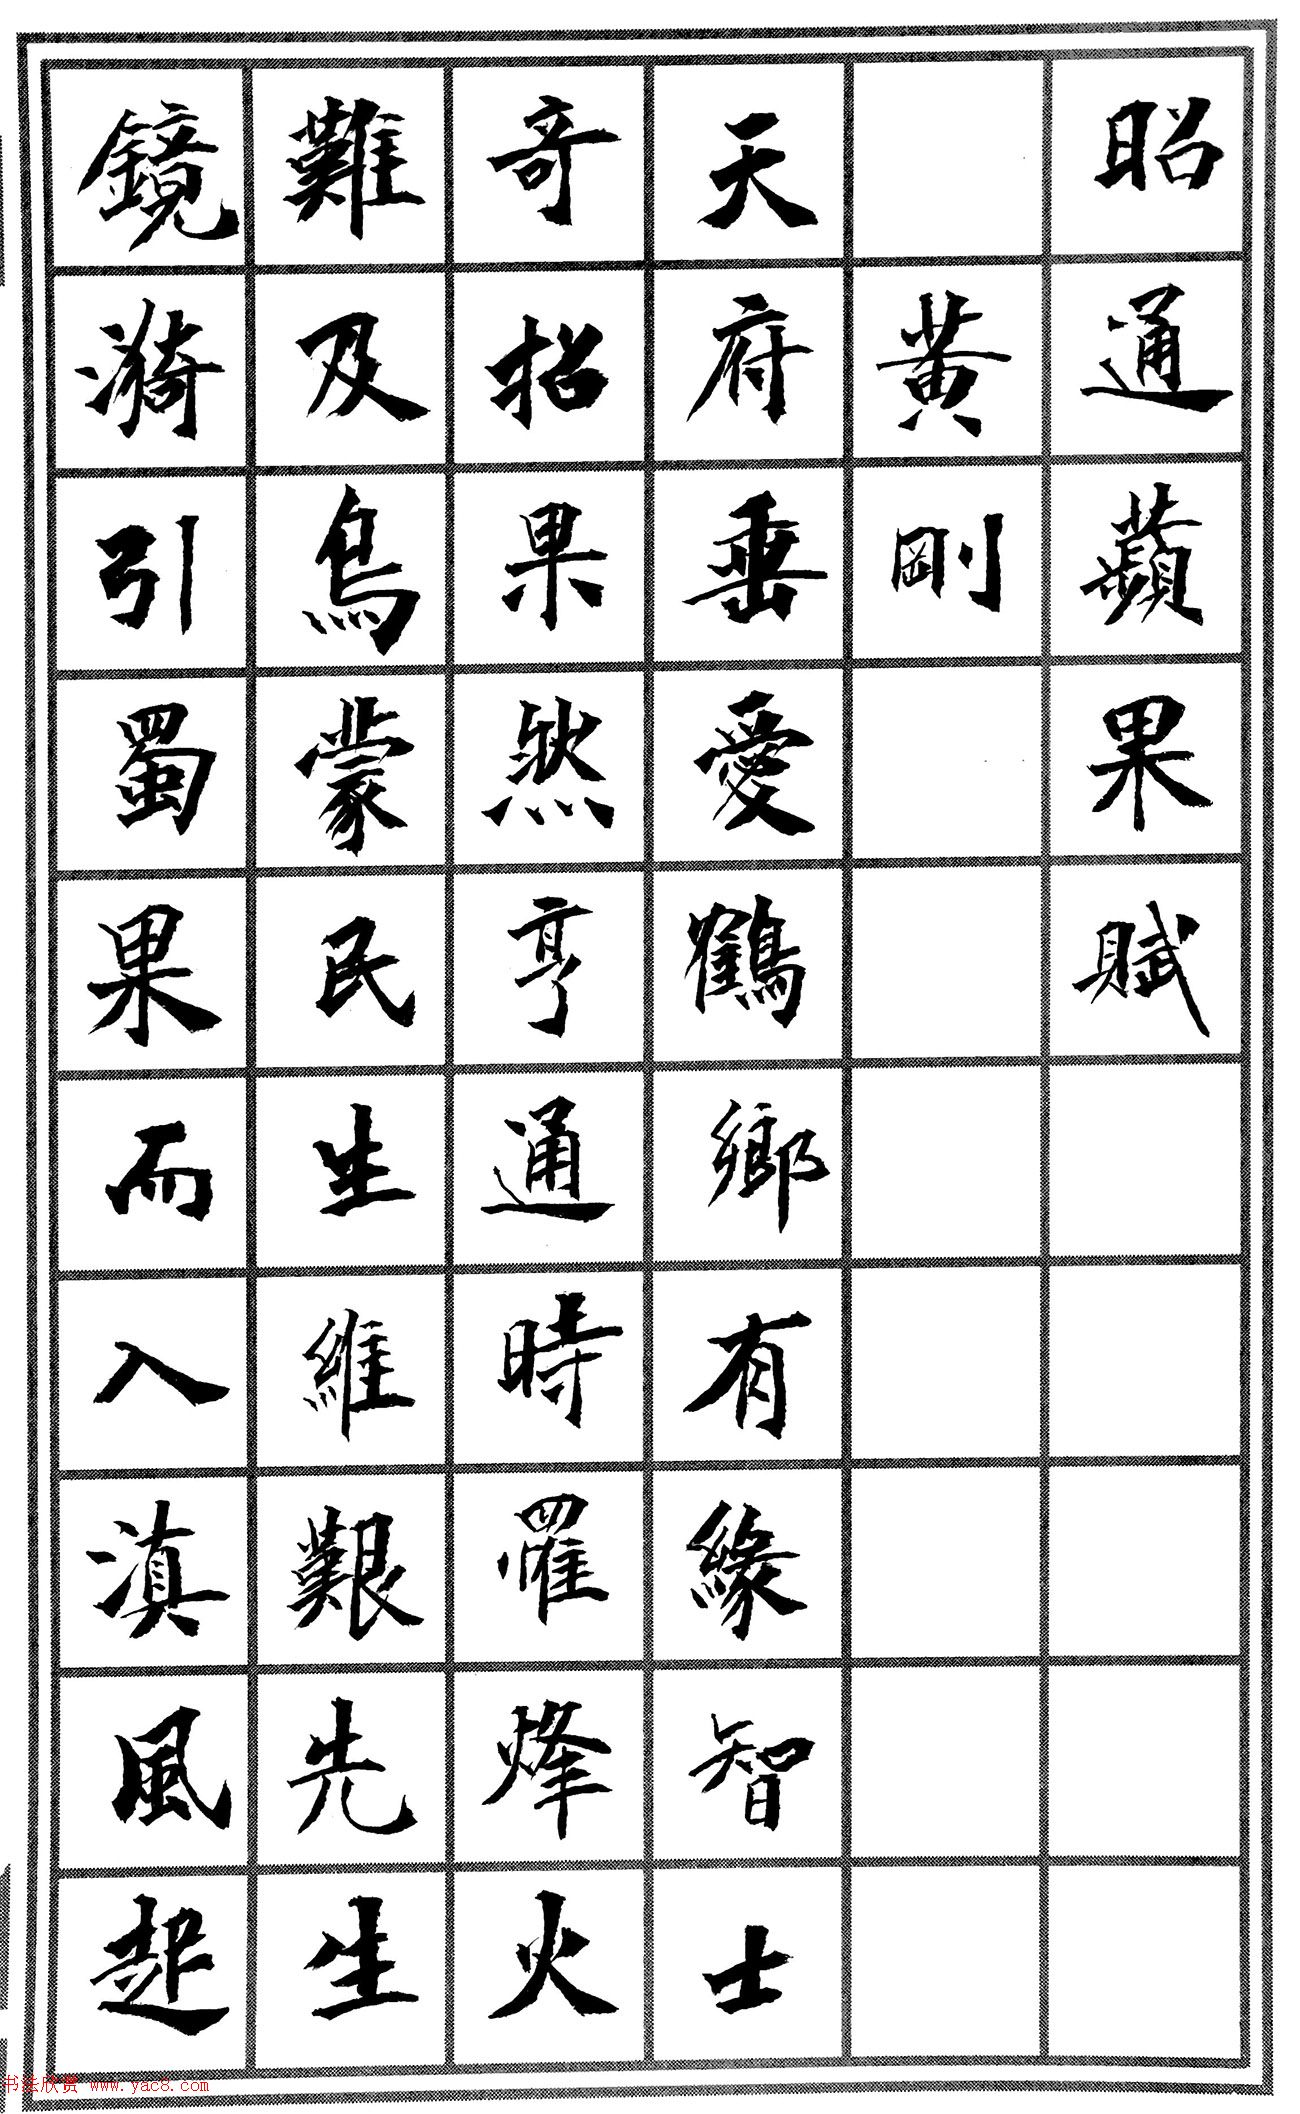 昭通蘋果賦
黃剛
天府垂愛鶴鄉有緣智士
奇招果然亨通時罹烽火
難及烏蒙民生維艱先生
鏡漪引蜀果而入滇風起
书法欣赏 www.yac8.com